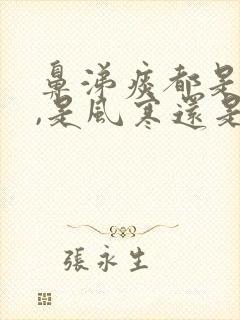 鼻涕痰都是
,是風寒還是
張永生